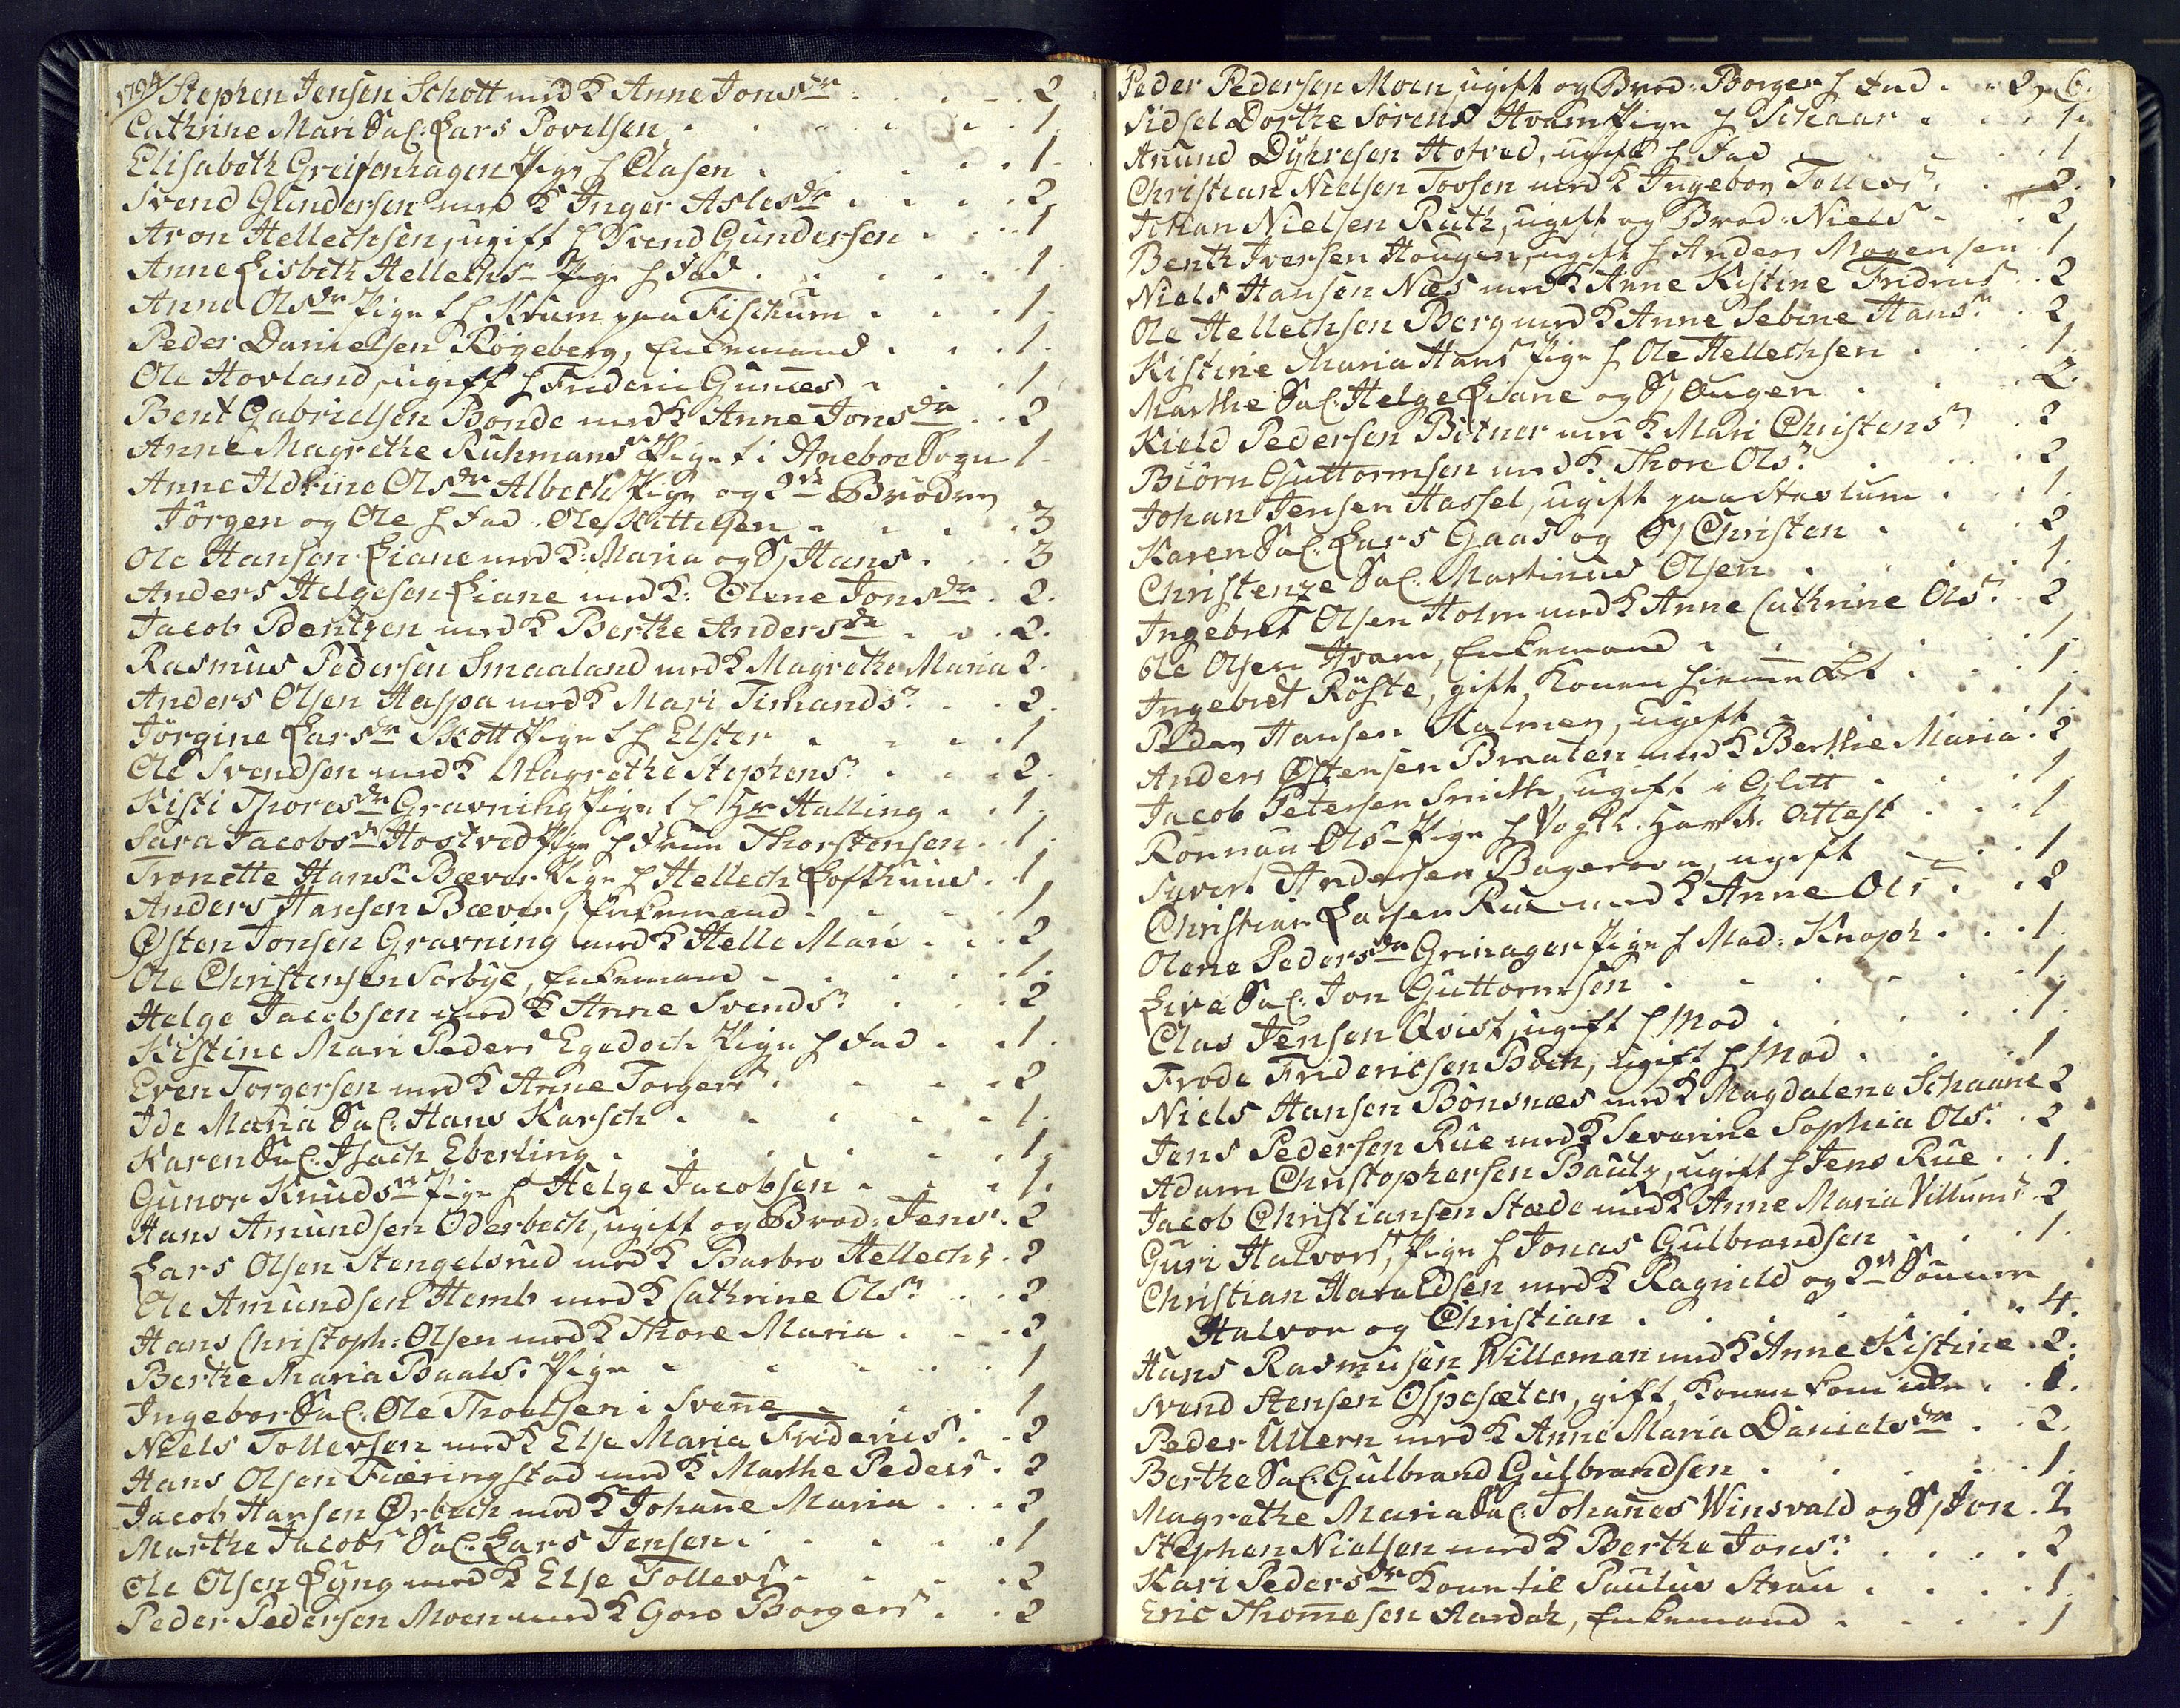 1794
Stephen Jensen Schott med K Anne Jonsdr . . . 2
Cathrine Mari Sal: Lars Povelsen . . . 1.
Elisabeth Greifenhagen Pige h Clasen . . . 1.
Svend Gundersen med K Inger Aslesdr . . . 2.
Aron Hellechsen, ugift h Svend Gundersen . . . 1
Anne Lisbeth Hellechsr Pige h Fad . . . 1.
Anne Olsdr Pige h Krum paa Fischum . . . 1.
Peder Danielsen Rögeberg, Enkemand . . . 1.
Ole Hovland, ugift h Frideric . . . 1.
Bent Gabrielsen Bonde med K Anne Jonsdr . . 2
Anne Magrethe Ruhmans Pige i Sogn 1.
Anne Olsdr Albech Pige og 2de Brödre
Jörgen og Ole h Fad Ole Kittelsen . . . 3
Ole Hansen Liane med K: Maria og S/ Hans . . . 3
Anders Helgesen Liane med K: Olene Jonsdr . 2.
Jacob Bentzen med K Berthe Andersdr . . . 2.
Rasmus Pedersen Smaaland med K Magrethe Maria 2.
Anders Olsen Haspa med K Mari Timands: . . 2.
Jörgine Larsdr Skott Pige h Elster . . . 1
Ole Svendsen med K Magrethe Stephens: . . . 2.
Kisti Thoresdr Gravning Pige h Hr Halling . . 1.
Sara Jacobsdr Hostved Pige h Frue Thorstensen . . 1.
Tronette Hansr Bæver Pige h Hellech Lofthuus . 1.
Anders Hansen Bæver, Enkemand . . . 1
Østen Jonsen Gravning med K Helle Mari . . . 2
Ole Christensen Sorbye, Enkemand . . . 1.
Helge Jacobsen med K Anne Svends: . . . 2
Kistine Mari Peders Egedoch Pige h Fad . . 1.
Even Torgersen med K Anne Torgers: . . . 2
Ide Maria Sal: Hans Karsch . . . 1.
Karen Sal: Isach Eberling . . . 1.
Gunor Knudsr Pige h Helge Jacobsen . . . 1.
Hans Amundsen Oderbech, ugift og Brod: Jens . 2
Lars Olsen Stengelsrud med K Barbro Hellechs . 2
Ole Amundsen Hemb med K Cathrine Ols: . . 2
Hans Christoph: Olsen med K Thore Maria . . . 2
Berthe Maria Baals: Pige . . . 1
Ingebor Sal: Ole Thoelsen i Svene . . . 1
Niels Tollevsen med K Else Maria Friderics: . . 2
Hans Olsen Fieringstad med K Marthe Peders . 2
Jacob Hansen Ørbech med K Johane Maria . . . 2
Marthe Jacobs Sal: Lars Jensen . . . 1
Ole Olsen Lyng med K Else Tollevs . . . 2
Peder Pedersen Moen med K Goro Borgers . . 2
Peder Pedersen Moen ugift og Brod: Borger h Fad . . 2. 6.
Sidsel Dorthe Sörens Hvam Pige h Schaar . . . 1.
Anund Dyhresen Hotved, ugift h Fad . . . 1
Christian Nielsen Tovsen med K Ingebor Tollevs: . . 2.
Johan Nielsen Ruth, ugift og Brod: Niels . . 2
Benth Iversen Hougen, ugift h Anders Mogensen . 1
Niels Hansen Næs med K Anne Kistine Fridrics . . 2
Ole Hellechsen Berg med K Anne Sebine Hans: . 2
Kistine Maria Hans Pige h Ole Hellechsen . . . 1.
Marthe Sal: Helge Liane og S/ Ougen . . . 2.
Kield Pedersen Bitner med K Mari Christens: . 2
Biörn Guttormsen med K Thore Ols: . . . 2
Johan Jensen Hassel, ugift paa Stavlum . . . 1.
Karen Sal: Lars Gaas og S/ Christen . . . 2
Christenze Sal: Martinus Olsen . . . 1.
Ingebret Olsen Holm med K Anne Cathrine Ols: . 2
Ole Olsen Hvam, Enkemand . . . 1
Ingebret Röste, gift, Konen . . . 1.
Peder Hansen Kalmen, ugift . . . 1.
Anders Østensen Braaten med K Berthe Maria . 2
Jacob Petersen Smith, ugift i Glitt . . . 1.
Rönnau Olsr Pige h Vogth. Attest . . . 1
Syvert Andersen Bageroen, ugift . . . 1
Christian Larsen Rue med K Anne Ols . . 2
Olene Pedersdr Grinager Pige h Mad: Knoph . . . 1.
Live Sal: Jon Guttormsen . . . 1.
Clas Jensen Qvist, ugift h Mod . . . 1.
Frode Fridericsen Boch, ugift h Mod . . . 1
Niels Hansen Bönsnæs med K Magdalena Schaane 2
Jens Pedersen Rue med K Severine Sophia Ols: . 2
Adam Christophersen Bautz, ugift h Jens Rue . . 1.
Jacob Christiansen Stæde med K Anne Maria Villums . 2
Guri Halvors, Pige h Jonas Gulbrandsen . . . 1.
Christian Haraldsen med K Ragnild og 2de Sönner
Halvor og Christian . . . 4.
Hans Rasmusen Willeman med K Anne Kistine . 2.
Svend Stensen Ospesæter, gift, Konen kom ikke . . 1.
Peder Ullern med K Anne Maria Danielsdr . . 2.
Berthe Sal: Gulbrand Gulbrandsen . . . 1.
Magrethe Maria Sal: Johanes Winsvald og S/ Jon . 2
Stephen Nielsen med K Berthe Jons: . . . 2
Kari Pedersdr Kone til Paulus Strau . . . 1.
Eric Thomesen Aardah, Enkemand . . . 1